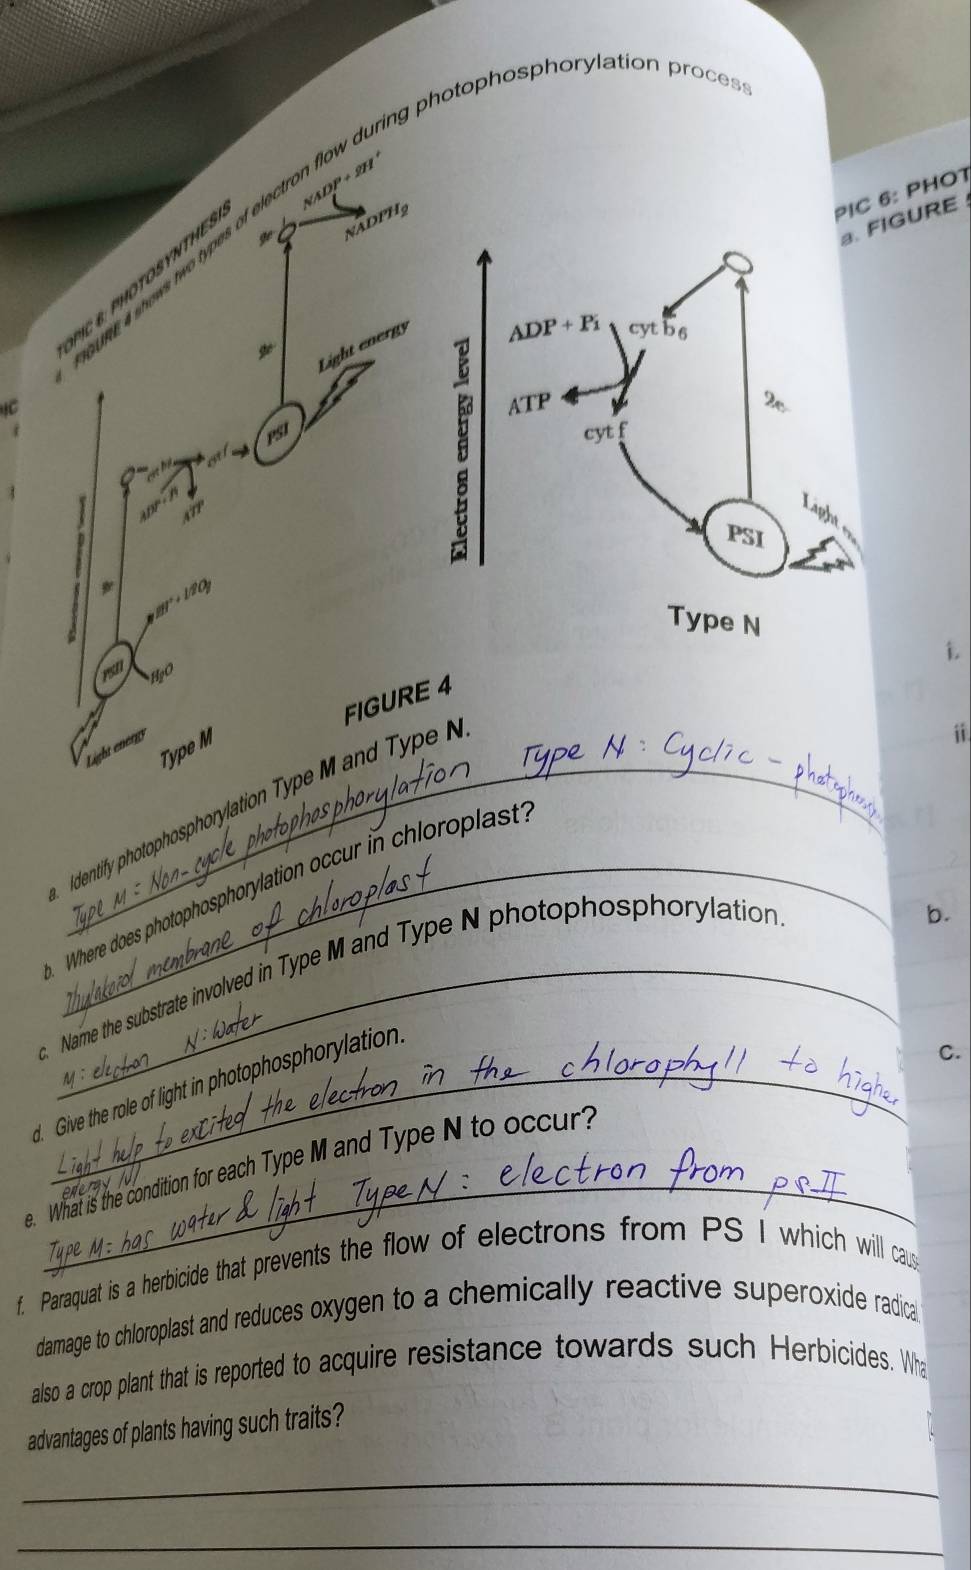 TOPIC 6: PHOTOSYNTHESIS
FIGURE 4 shows two types of electron flow during photophosphorylation process
PIC 6: PHOT
a. FIGURE
NADP + 2H+
2e-
NADPH2
2e-
Light energy
PSI
cyt f
ADP + Pi
ATP
2H+ + 1/2 O2
PSII
H2O
Light energy
Type M
Electron energy level
ADP + Pi
cyt b6
ATP
cyt f
2e-
PSI
Light
Type N
FIGURE 4
i.
ii.
a. Identify photophosphorylation Type M and Type N.
Type M : Non-cycle photophosphorylation Type N : Cyclic - photophosph
b. Where does photophosphorylation occur in chloroplast?
Thylakoid membrane of chloroplast
b.
c. Name the substrate involved in Type M and Type N photophosphorylation.
M : electron N : Water
c.
d. Give the role of light in photophosphorylation.
Light help to excited the electron in the chlorophyll to higher
energy lvl
e. What is the condition for each Type M and Type N to occur?
Type M : has water & light Type N : electron from PS II
f. Paraquat is a herbicide that prevents the flow of electrons from PS I which will cause
damage to chloroplast and reduces oxygen to a chemically reactive superoxide radical.
also a crop plant that is reported to acquire resistance towards such Herbicides. Wha
advantages of plants having such traits?